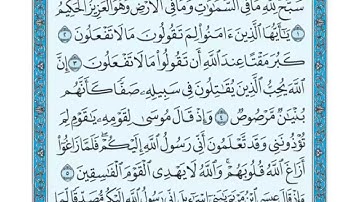 سَبَّحَ لِلَّهِ مَا فِي السَّمَٰوَٰتِ وَمَا فِي الْأَرْضِ وَهُوَ الْعَزِيزُ الْحَكِيمُ
١ يَٰأَيُّهَا الَّذِينَ ءَامَنُوا لِمَ تَقُولُونَ مَا لَا تَفْعَلُونَ ٢
كَبُرَ مَقْتًا عِندَ اللَّهِ أَن تَقُولُوا مَا لَا تَفْعَلُونَ ٣ إِنَّ
اللَّهَ يُحِبُّ الَّذِينَ يُقَٰتِلُونَ فِي سَبِيلِهِ صَفًّا كَأَنَّهُم
بُنْيَٰنٌ مَّرْصُوصٌ ٤ وَإِذْ قَالَ مُوسَىٰ لِقَوْمِهِ يَٰقَوْمِ لِمَ
تُؤْذُونَنِي وَقَد تَّعْلَمُونَ أَنِّي رَسُولُ اللَّهِ إِلَيْكُمْ فَلَمَّا زَاغُوا
أَزَاغَ اللَّهُ قُلُوبَهُمْ وَاللَّهُ لَا يَهْدِي الْقَوْمَ الْفَٰسِقِينَ ٥
وَإِذْ قَالَ عِيسَى ابْنُ مَرْيَمَ يَٰبَنِي إِسْرَٰءِيلَ إِنِّي رَسُولُ اللَّهِ إِلَيْكُم مُّصَدِّقًا لِّمَا